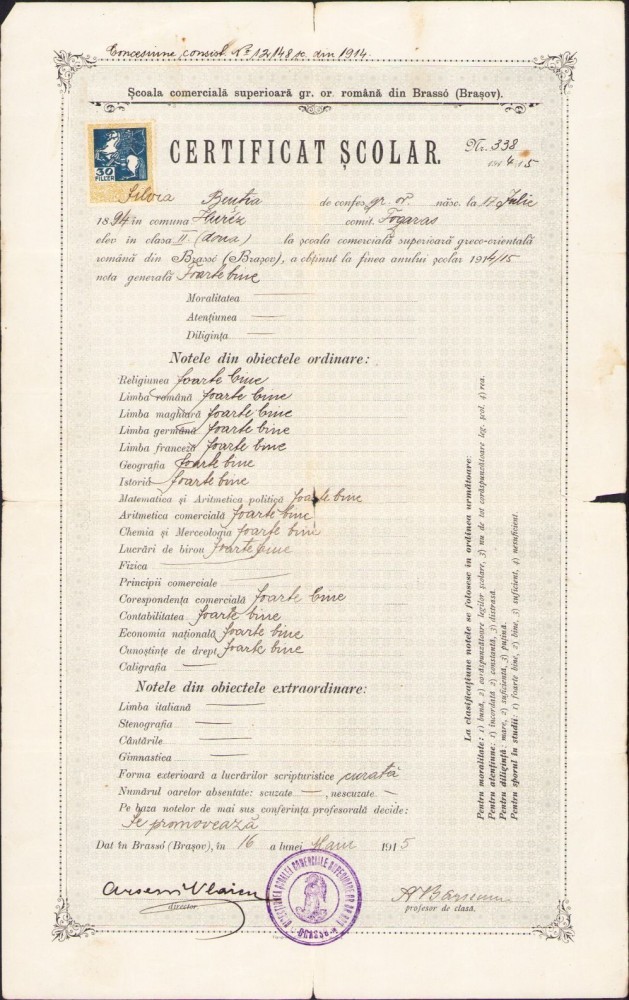 Concesiune consist. No 12148 sc. din 1914.
Școala comercială superioară gr. or. română din Brassó (Brașov).
30
FILLÉR
CERTIFICAT ȘCOLAR.
Nr. 338
1914/15
Silvia Bentia de confes. gr. or. născ. la 17 Julie
1894 în comuna Huréz comit. Fogaras
elev în clasa II. (doua) la școala comercială superioară greco-orientală
română din Brassó (Brașov), a obținut la finea anului școlar 1914/15
nota generală Foarte bine
Moralitatea —
Atențiunea —
Diligința —
Notele din obiectele ordinare:
Religiunea foarte bine
Limba română foarte bine
Limba maghiară foarte bine
Limba germână foarte bine
Limba franceză foarte bine
Geografia foarte bine
Istoria foarte bine
Matematica și Aritmetica politică foarte bine
Aritmetica comercială foarte bine
Chemia și Merceologia foarte bine
Lucrări de birou foarte bine
Fizica —
Principii comerciale —
Corespondența comercială foarte bine
Contabilitatea foarte bine
Economia națională foarte bine
Cunoștințe de drept foarte bine
Caligrafia —
Notele din obiectele extraordinare:
Limba italiană —
Stenografia —
Cântările —
Gimnastica —
Forma exterioară a lucrărilor scripturistice curată
Numărul oarelor absentate: scuzate —, nescuzate —
Pe baza notelor de mai sus conferința profesorală decide:
Se promovează
Dat în Brassó (Brașov), în 16 a lunei Maiu 1915
Arseni Vlaicu
director.
A Bârseanu
profesor de clasă.
DIRECȚIUNEA ȘCOALEI COMERCIALE SUPERIOARE GR. OR. ROM.
BRASSÓ
La clasificațiune notele se folosesc în ordinea următoare:
Pentru moralitate: 1) bună, 2) corăspunzătoare legilor școlare, 3) nu de tot corăspunzătoare leg. școl. 4) rea.
Pentru atențiune: 1) încordată 2) constantă, 3) distrasă.
Pentru diligință: mare, 2) suficientă, 3) puțină.
Pentru sporul în studii: 1) foarte bine, 2) bine, 3) suficient, 4) nesuficient.